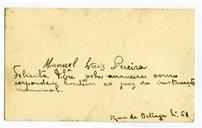 Manuel Luiz Pereira
Felicita V. Exª. pela maneira como
respondeu hontem ao juiz da instrucção
criminal.
Rua da Betesga Nº 69